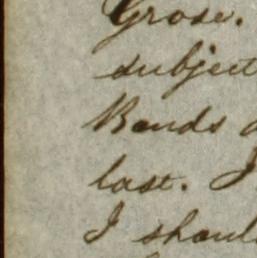 Grose.
subject
Bonds
last. I
I should